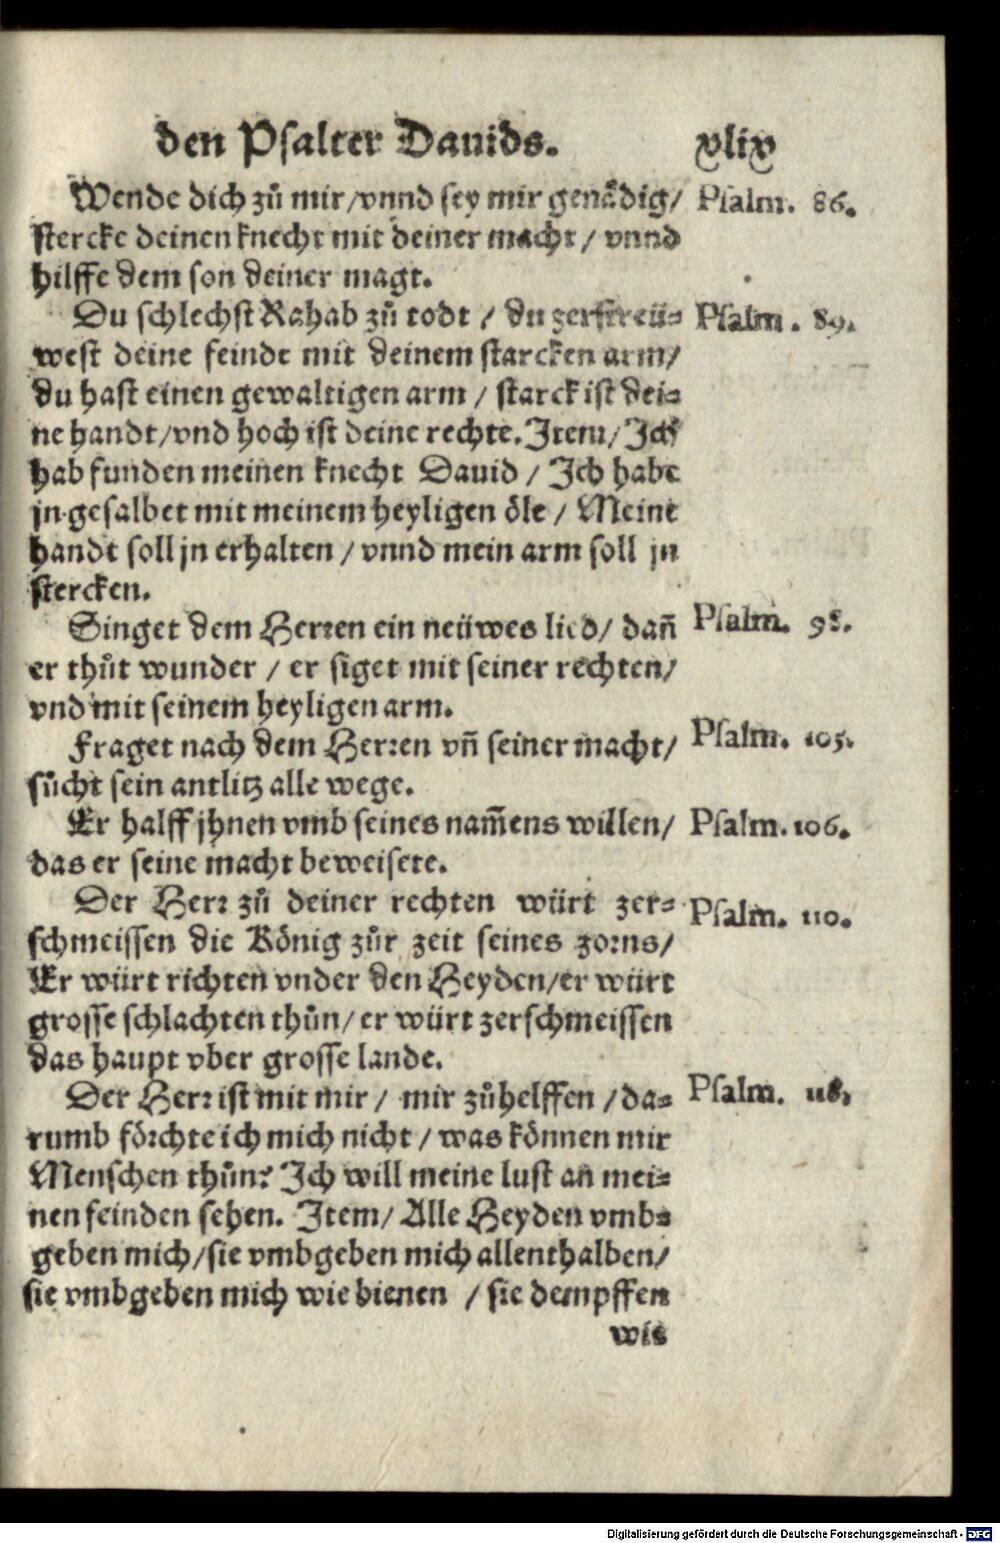 den Psalter Dauids. xlix
Wende dich zů mir/vnnd sey mir genådig/ Psalm. 86.
stercke deinen knecht mit deiner macht/ vnnd
hilffe dem son deiner magt.
Du schlechst Rahab zů todt / du zerstreü= Psalm. 89.
west deine feinde mit deinem starcken arm/
du hast einen gewaltigen arm / starck ist dei=
ne handt/vnd hoch ist deine rechte. Item/ Ich
hab funden meinen knecht Dauid / Ich habe
jn gesalbet mit meinem heyligen öle / Meine
handt soll jn erhalten / vnnd mein arm soll jn
stercken.
Singet dem Herren ein neüwes lied/ dañ Psalm. 98.
er thůt wunder / er siget mit seiner rechten/
vnd mit seinem heyligen arm.
Fraget nach dem Herren vñ seiner macht/ Psalm. 105.
sůcht sein antlitz alle wege.
Er halff jhnen vmb seines nam̃ens willen/ Psalm. 106.
das er seine macht beweisete.
Der Herr zů deiner rechten würt zer= Psalm. 110.
schmeissen die König zůr zeit seines zorns/
Er würt richten vnder den Heyden/er würt
grosse schlachten thůn/ er würt zerschmeissen
das haupt vber grosse lande.
Der Herr ist mit mir / mir zůhelffen / da= Psalm. 118.
rumb förchte ich mich nicht / was können mir
Menschen thůn? Ich will meine lust an mei=
nen feinden sehen. Item/ Alle Heyden vmb=
geben mich/sie vmbgeben mich allenthalben/
sie vmbgeben mich wie bienen / sie dempffen
wie
Digitalisierung gefördert durch die Deutsche Forschungsgemeinschaft - DFG